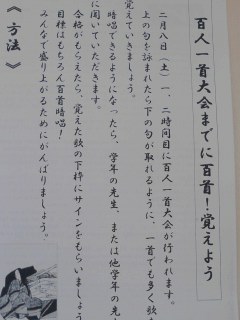 百人一首大会までに百首！覚えよう
二月八日（土）一、二時間目に百人一首大会が行われます。
上の句を詠まれたら下の句が取れるように、一首でも多く歌
覚えていきましょう。
暗唱できるようになったら、学年の先生、または他学年の先
に聞いていただきます。
合格がもらえたら、覚えた歌の下枠にサインをもらいましょう
目標はもちろん百首暗唱！
みんなで盛り上がるためにがんばりましょう。
《方法》